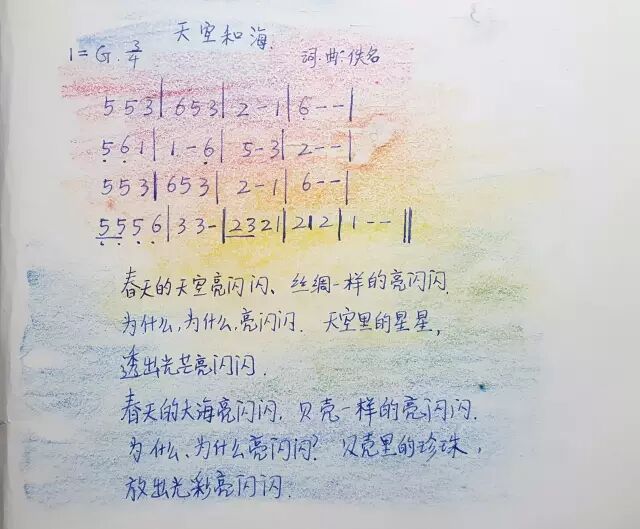 天空和海
1=G. 3/4 词.曲:佚名
5 5 3 | 6 5 3 | 2 - 1 | 6 - - |
5 6 1 | 1 - 6 | 5 - 3 | 2 - - |
5 5 3 | 6 5 3 | 2 - 1 | 6 - - |
5 5 5 6 | 3 3 - | 2 3 2 1 | 2 1 2 | 1 - - ||
春天的天空亮闪闪、丝绸一样的亮闪闪.
为什么,为什么,亮闪闪. 天空里的星星,
透出光芒亮闪闪.
春天的大海亮闪闪, 贝壳一样的亮闪闪.
为什么、为什么亮闪闪? 贝壳里的珍珠,
放出光彩亮闪闪.